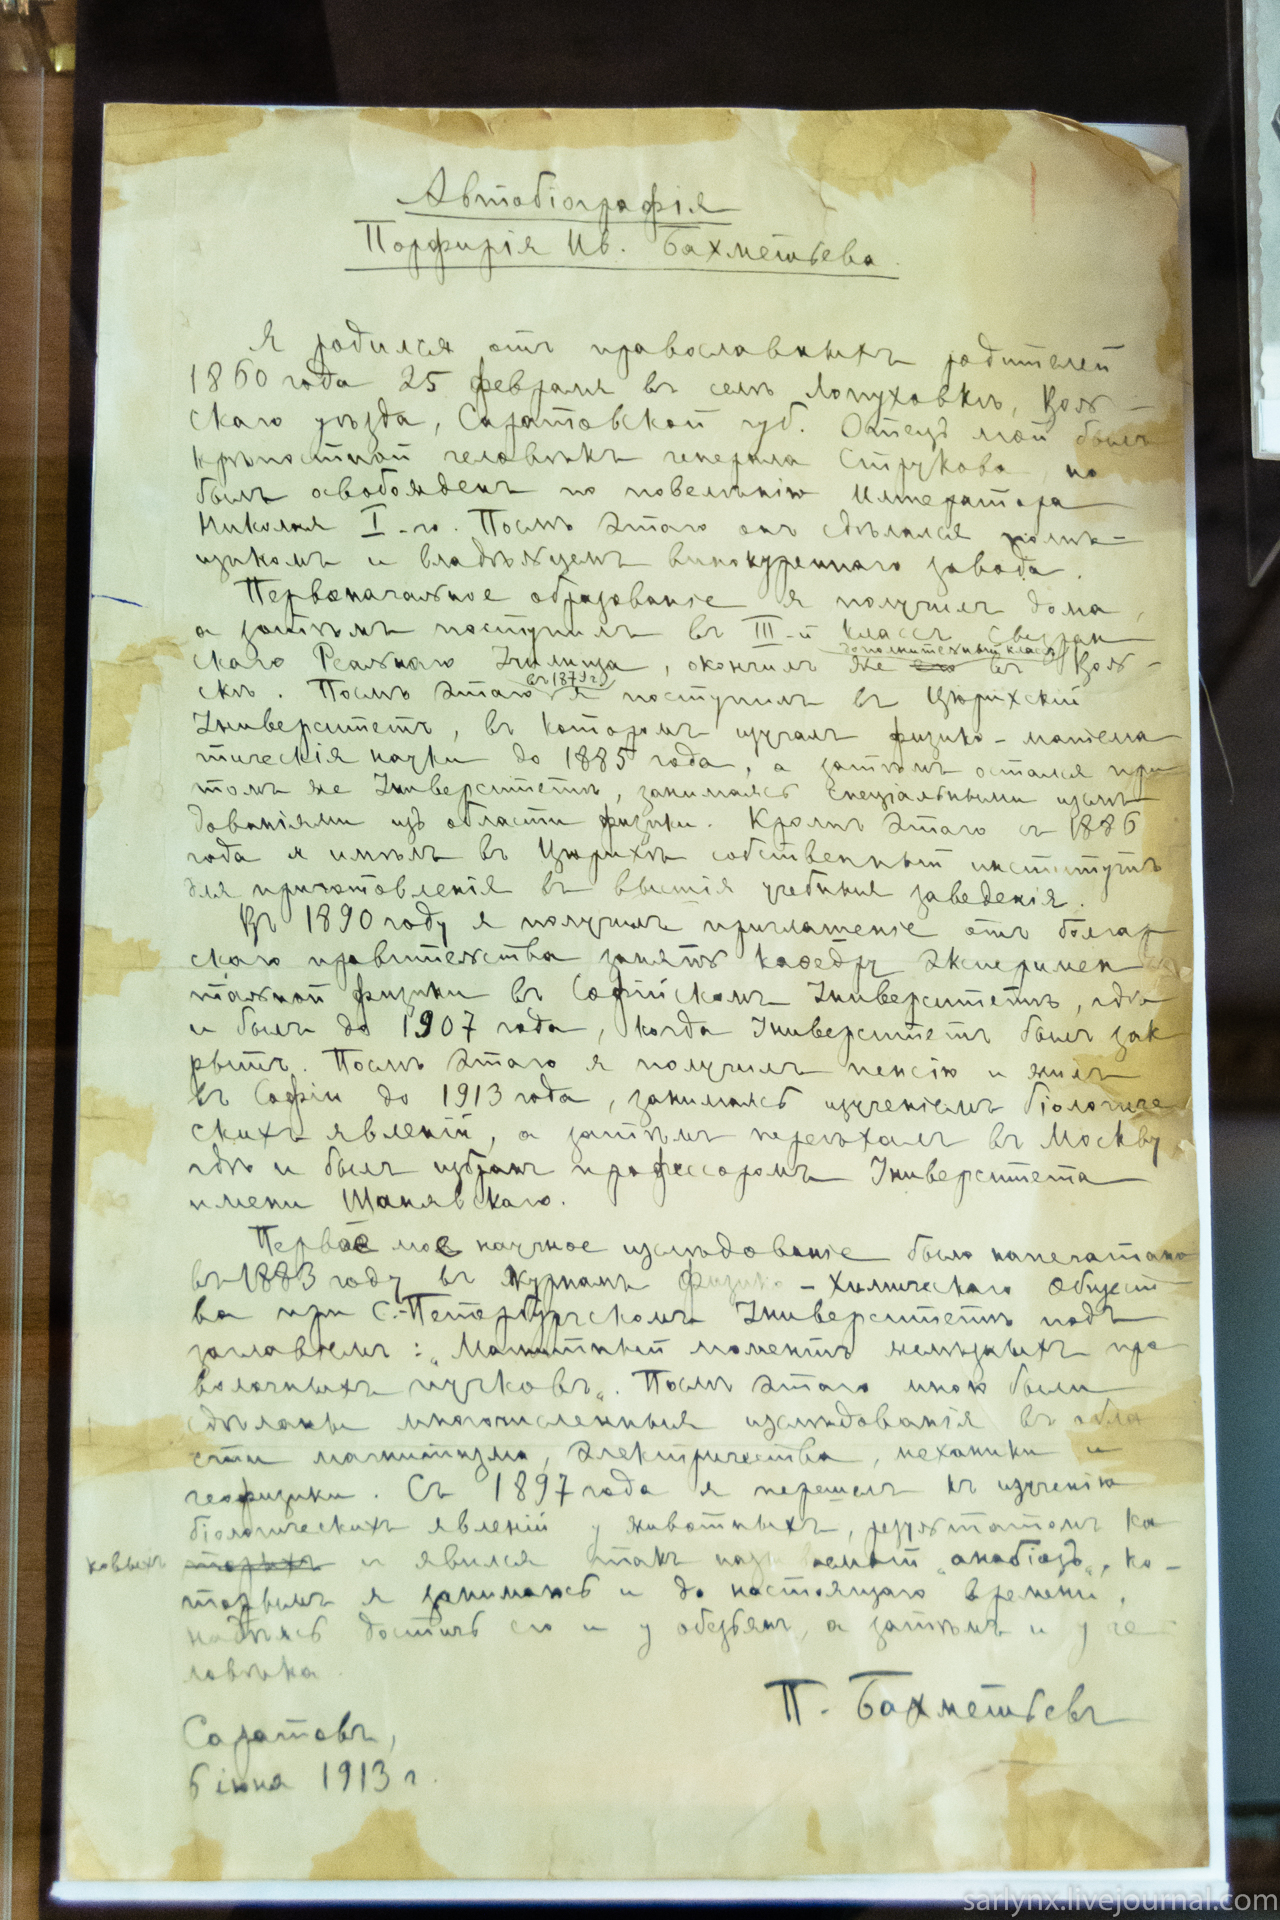 Автобіографія
Порфирія Ив. Бахметьева
Я родился отъ православныхъ родителей
1860 года 25 февраля въ селѣ Лопуховкѣ, Воль-
скаго уѣзда, Саратовской губ. Отецъ мой былъ
крѣпостной человѣкъ генерала Струкова, но
былъ освобожденъ по повелѣнію Императора
Николая I-го. Послѣ этого онъ сдѣлался помѣ-
щикомъ и владѣльцемъ винокуреннаго завода.
Первоначальное образованіе я получилъ дома,
а затѣмъ поступилъ въ III-й классъ Сызран
скаго Реальнаго Училища, окончилъ же его въ Воль-
дополнительный классъ
скѣ. Послѣ этого я поступилъ въ Цюрихскій
въ 1879 г.
Университетъ, въ которомъ изучалъ физико-матема
тическія науки до 1885 года, а затѣмъ остался при
томъ же Университетѣ, занимаясь спеціальными изслѣ
дованіями изъ области физики. Кромѣ этого съ 1886
года я имѣлъ въ Цюрихѣ собственный институтъ
для приготовленія въ высшія учебныя заведенія.
Въ 1890 году я получилъ приглашеніе отъ болгар
скаго правительства занять кафедру эксперимен
тальной физики въ Софійскомъ Университетѣ, гдѣ
и былъ до 1907 года, когда Университетъ былъ зак
рытъ. Послѣ этого я получилъ пенсію и жилъ
въ Софіи до 1913 года, занимаясь изученіемъ біологиче
скихъ явленій, а затѣмъ переѣхалъ въ Москву,
гдѣ и былъ избранъ профессоромъ Университета
имени Шанявскаго.
Первое мое научное изслѣдованіе было напечатано
въ 1883 году въ Журналѣ Физико-Химическаго Общест
ва при С.-Петербургскомъ Университетѣ подъ
заглавіемъ: „Магнитный моментъ желѣзныхъ про
волочныхъ пучковъ„. Послѣ этого мною были
сдѣланы многочисленныя изслѣдованія въ обла
сти магнитизма, электричества, механики и
геофизики. Съ 1897 года я перешелъ къ изученію
біологическихъ явленій у животныхъ, результатомъ ка
ковыхъ торыхъ и явился такъ называемый „анабіозъ„, ко-
торымъ я занимаюсь и до настоящаго времени,
надѣясь достичь его и у обезьянъ, а затѣмъ и у че
ловѣка.
П. Бахметьевъ
Саратовъ,
6 іюня 1913 г.
sarlynx.livejournal.com